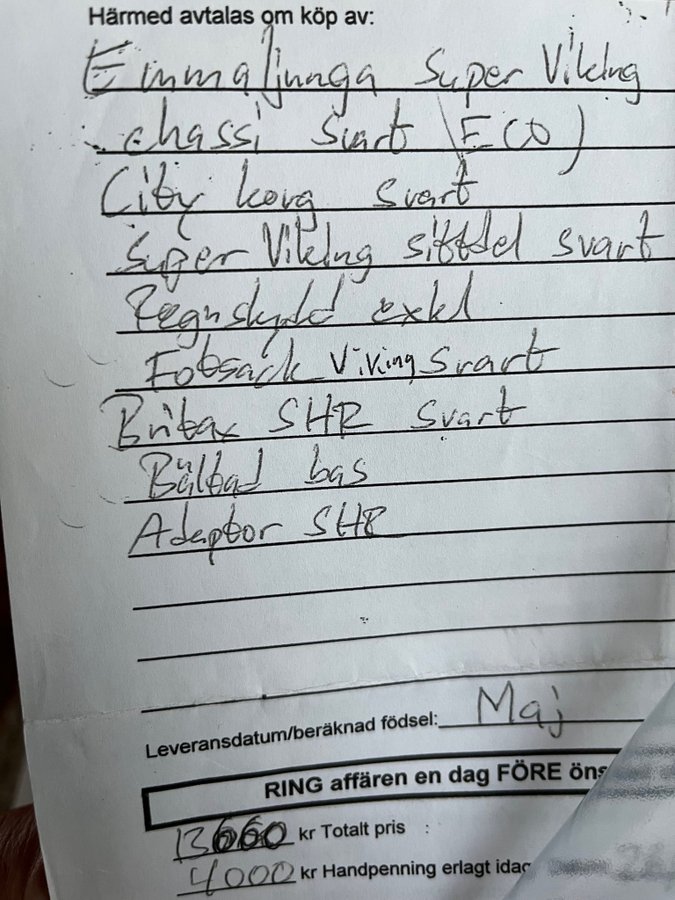 Härmed avtalas om köp av:
Emmaljunga Super Viking
chassi svart (ECO)
City korg svart
Super Viking sittdel svart
Regnskydd exkl
Fotsäck Viking svart
Britax SHR svart
Bältad bas
Adaptor SHR
Leveransdatum/beräknad födsel: Maj
RING affären en dag FÖRE öns
13660 kr Totalt pris :
4000 kr Handpenning erlagt idag